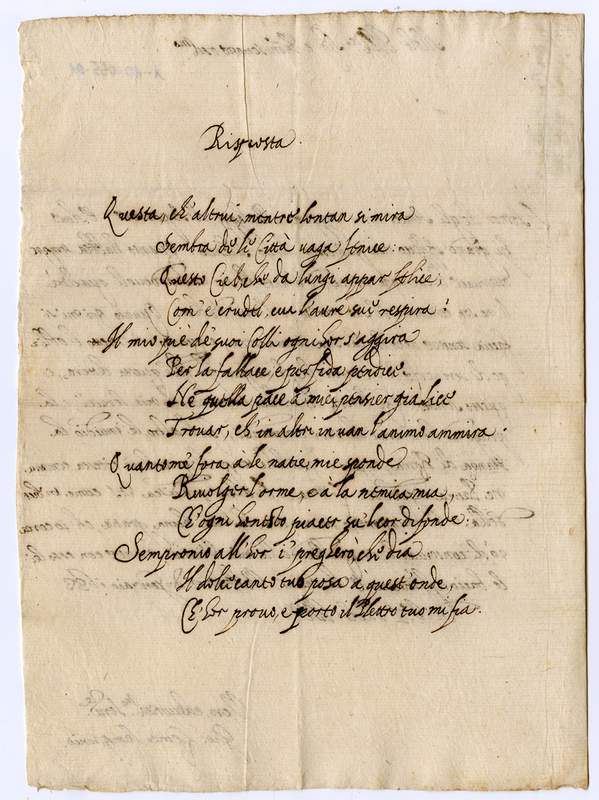 Risposta.
Questa, ch'altrui, mentre lontan si mira
Sembra de le Città vaga fenice:
Questo Ciel, che da lungi appar felice,
Com'è crudel, cui l'aure sue respira!
Il mio piè de' suoi Colli ogni hor s'aggira
Per la fallace, e perfida pendice.
Nè quella pace à miei pensier già lice
Trovar, ch'in altri in van l'animo ammira.
Quanto me' fora à le natie mie sponde
Rivolger l'orme, e à la nemica mia,
Ch'ogni honesto piacer su'l cor difonde.
Sempronio all'hor i' pregherò, che dia
Il dolce canto tuo posa a quest'onde,
Ch'hor provo, e porto il Plettro tuo mi sia.